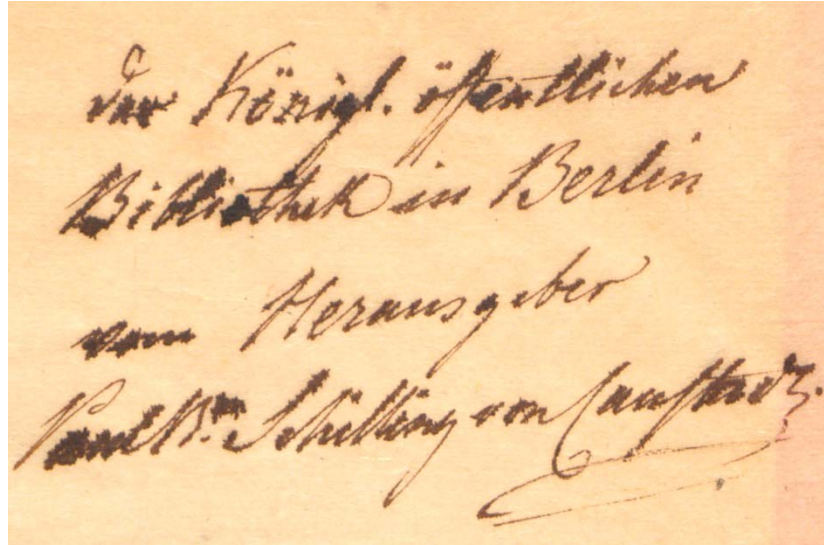 der Königl. öffentlichen
Bibliothek in Berlin
vom Herausgeber
Paul Bn. Schilling von Canstadt.